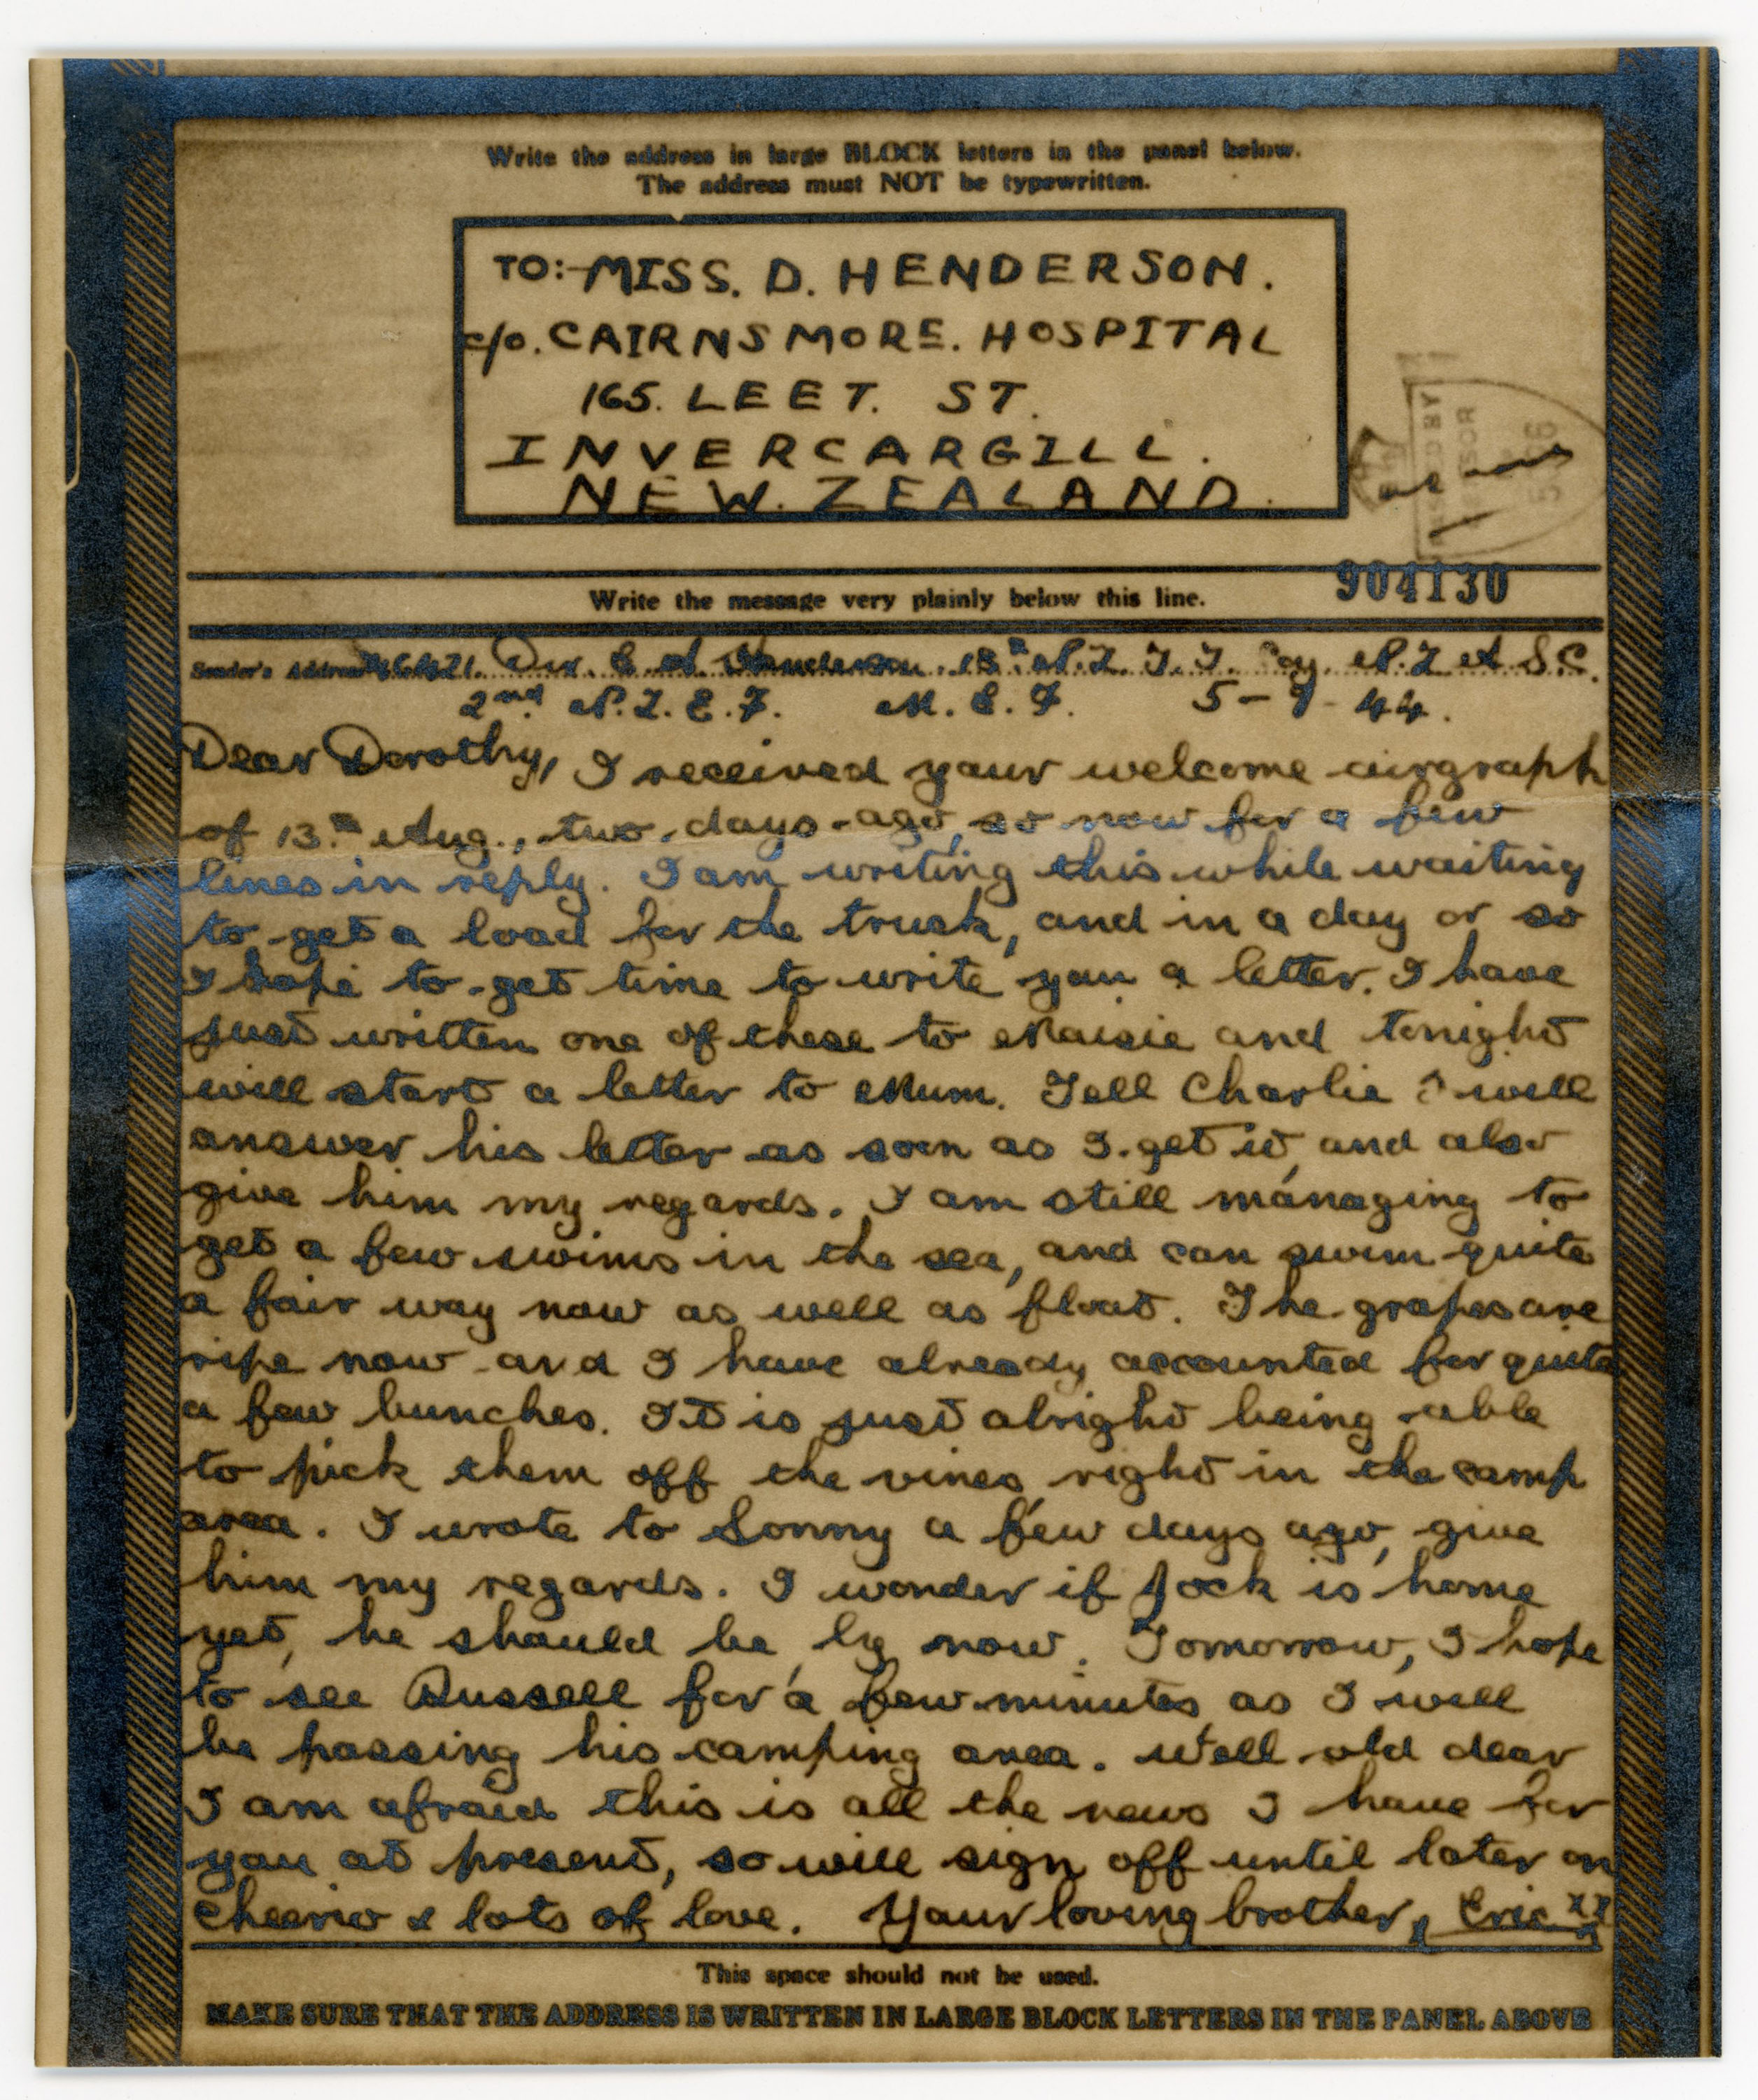 Write the address in large BLOCK letters in the panel below.
The address must NOT be typewritten.
TO:- MISS. D. HENDERSON.
c/o. CAIRNSMORE. HOSPITAL
165. LEET. ST.
INVERCARGILL.
NEW. ZEALAND.
904130
Write the message very plainly below this line.
Sender's Address Dvr. E. A. Henderson. N.Z. Coy. N.Z.A.S.C.
2nd N.Z.E.F. M.E.F. 5-9-44.
Dear Dorothy, I received your welcome airgraph
of 13th Aug., two days ago, so now for a few
lines in reply. I am writing this while waiting
to get a load for the truck, and in a day or so
I hope to get time to write you a letter. I have
just written one of these to Maisie and tonight
will start a letter to Mum. Tell Charlie I will
answer his letter as soon as I get it, and also
give him my regards. I am still managing to
get a few swims in the sea, and can swim quite
a fair way now as well as float. The grapes are
ripe now and I have already accounted for quite
a few bunches. It is just alright being able
to pick them off the vines right in the camp
area. I wrote to Sonny a few days ago, give
him my regards. I wonder if Jock is home
yet, he should be by now. Tomorrow, I hope
to see Russell for a few minutes as I will
be passing his camping area. Well old dear
I am afraid this is all the news I have for
you at present, so will sign off until later on
Cheerio & lots of love. Your loving brother, Eric xx
This space should not be used.
MAKE SURE THAT THE ADDRESS IS WRITTEN IN LARGE BLOCK LETTERS IN THE PANEL ABOVE